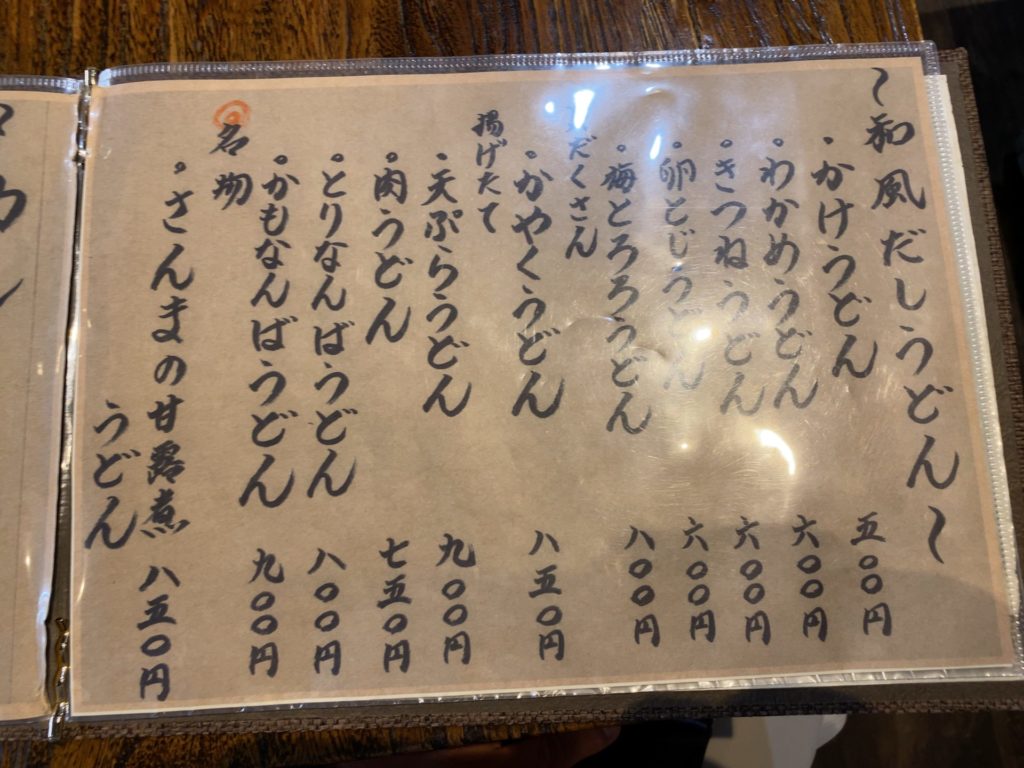 〜和風だしうどん〜
・かけうどん 五〇〇円
・わかめうどん 六〇〇円
・きつねうどん 六〇〇円
・卵とじうどん 六〇〇円
・梅とろろうどん 八〇〇円
だくさん
・かやくうどん 八五〇円
揚げたて
・天ぷらうどん 九〇〇円
・肉うどん 七五〇円
・とりなんばうどん 八〇〇円
・かもなんばうどん 九〇〇円
名物
・さんまの甘露煮
うどん 八五〇円